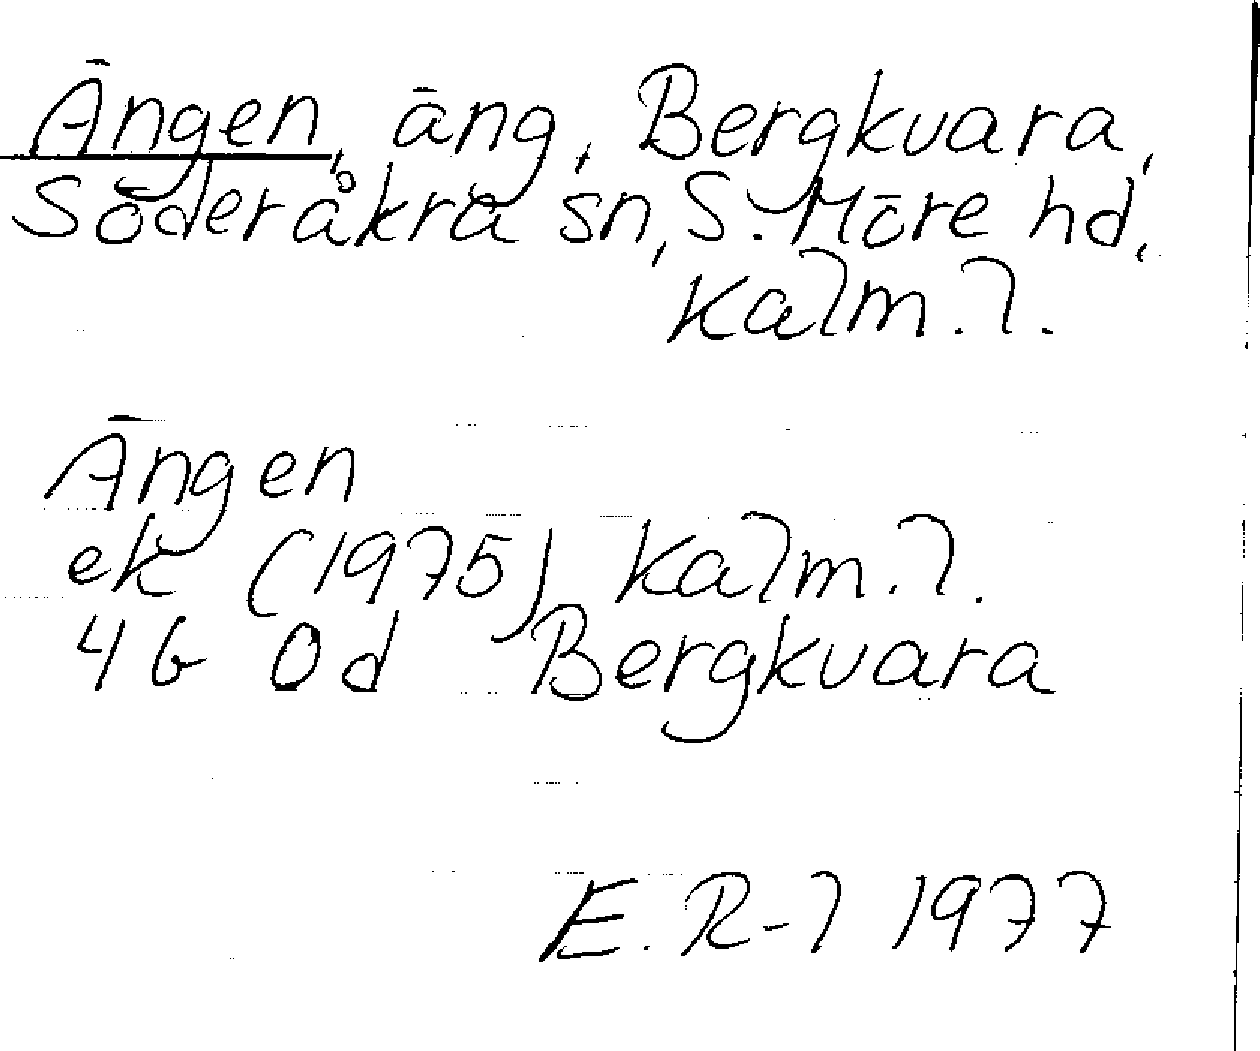 Ängen, äng, Bergkvara,
Söderåkra sn, S. Möre hd,
Kalm. l.
Ängen
ek (1975) Kalm. l.
4G 0d Bergkvara
E. R-l 1977